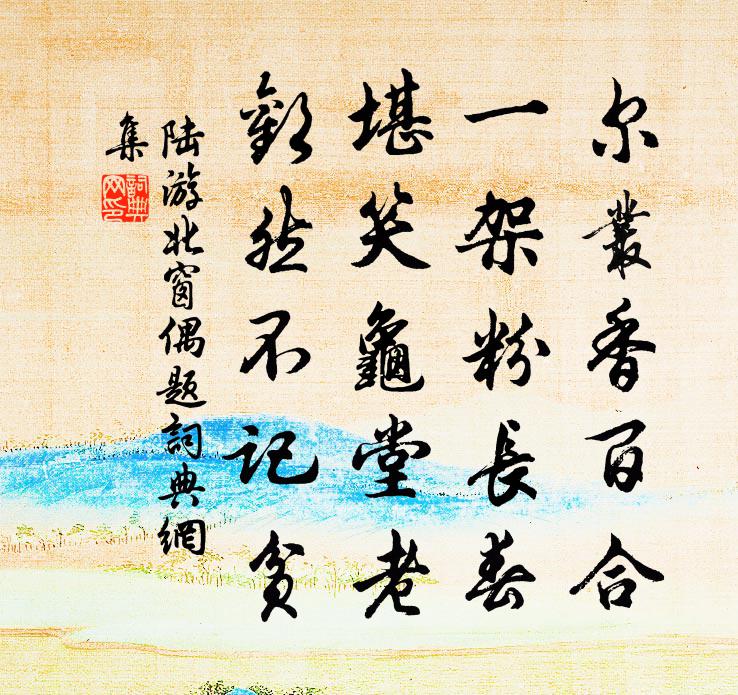 尔叢香百合
一架粉長春
堪笑龜堂老
歡然不記貧
陸游北窗偶題詞典網
集
詞典
网印